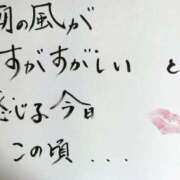 朝の風が
すがすがしい と
感じる今日
この頃 ...